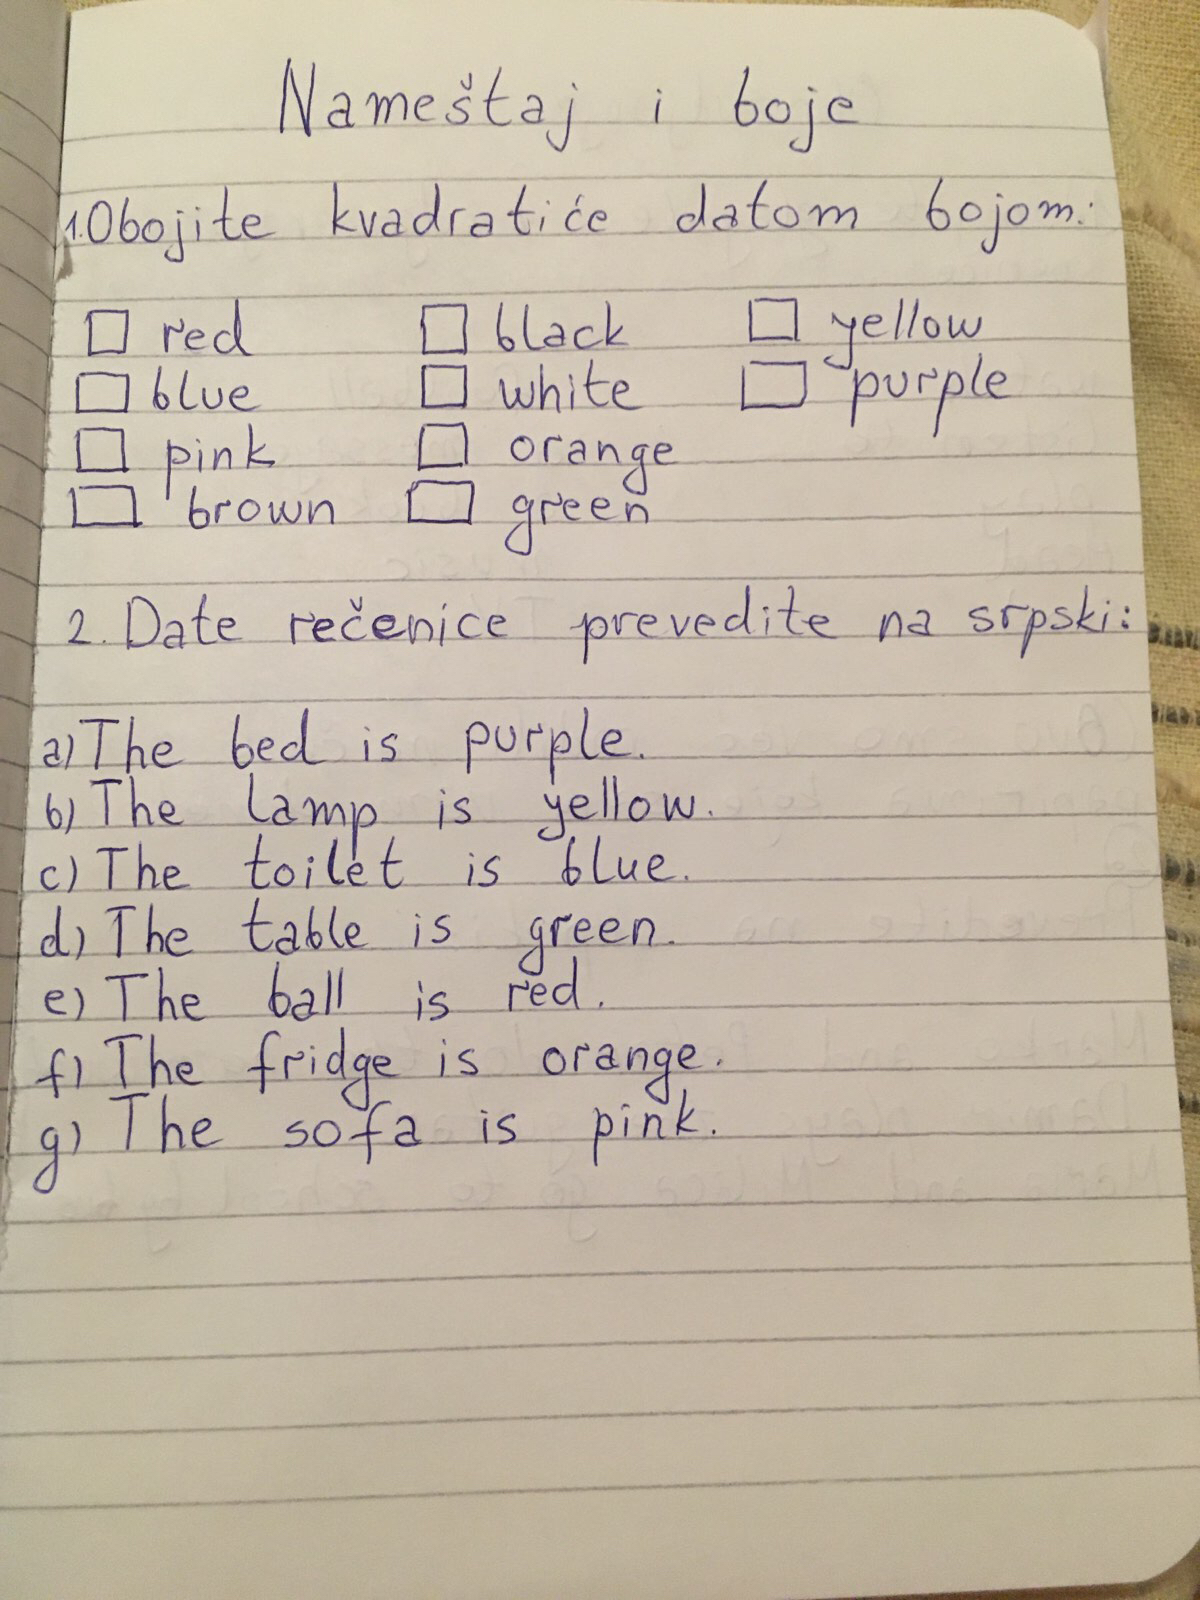 Nameštaj i boje
1.Obojite kvadratiće datom bojom:
red black yellow
blue white purple
pink orange
brown green
2. Date rečenice prevedite na srpski:
a) The bed is purple.
b) The lamp is yellow.
c) The toilet is blue.
d) The table is green.
e) The ball is red.
f) The fridge is orange.
g) The sofa is pink.